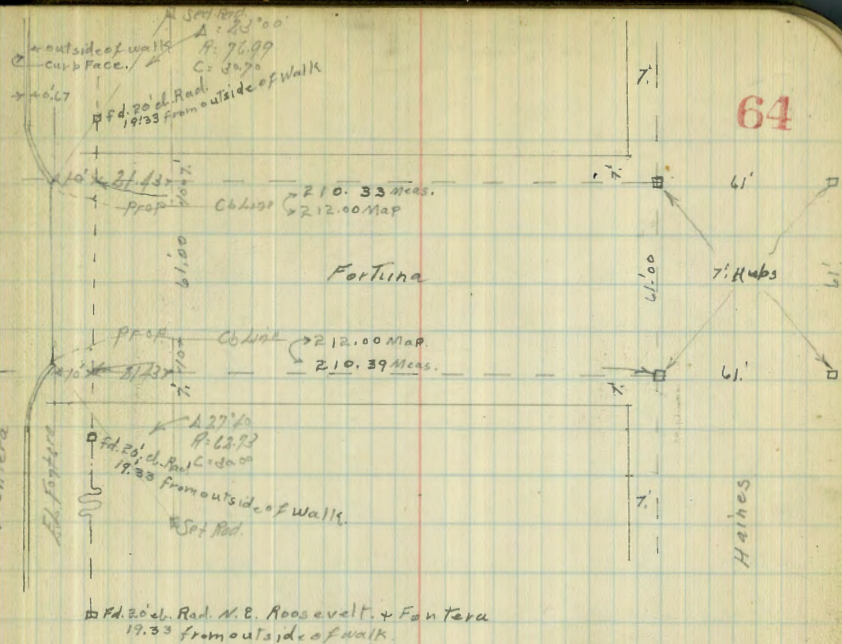 64
Set Rad.
Δ = 23°00'
R = 76.99
C = 30.70
outside of walk
curb Face.
0.67
Fd. 20' cb. Rad.
19.33 from outside of Walk
7'
10' 21.43
7'
7'
210.33 Meas.
PROP. Cb Line
212.00 Map
61'
61.00
Fortuna
61.00
7' Hubs
61'
PROP. Cb Line
212.00 Map.
210.39 Meas.
10' 21.43
7'
7'
61'
Δ 27°10
R = 62.73
C = 30.00
Fd. 20' cb. Rad.
19.33 from outside of Walk.
Set Rad.
7'
Haines
Fd. 20' cb. Rad. N.E. Roosevelt. + Fontera
19.33 from outside of walk.